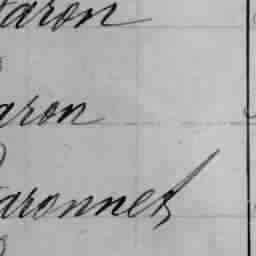 aron
aron
aronnet